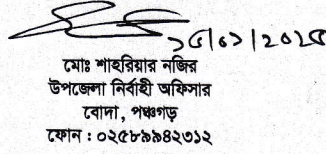 ১৫/০১/২০২৫
মোঃ শাহরিয়ার নজির
উপজেলা নির্বাহী অফিসার
বোদা, পঞ্চগড়
ফোন : ০২৫৮৯৯৪২৩১২